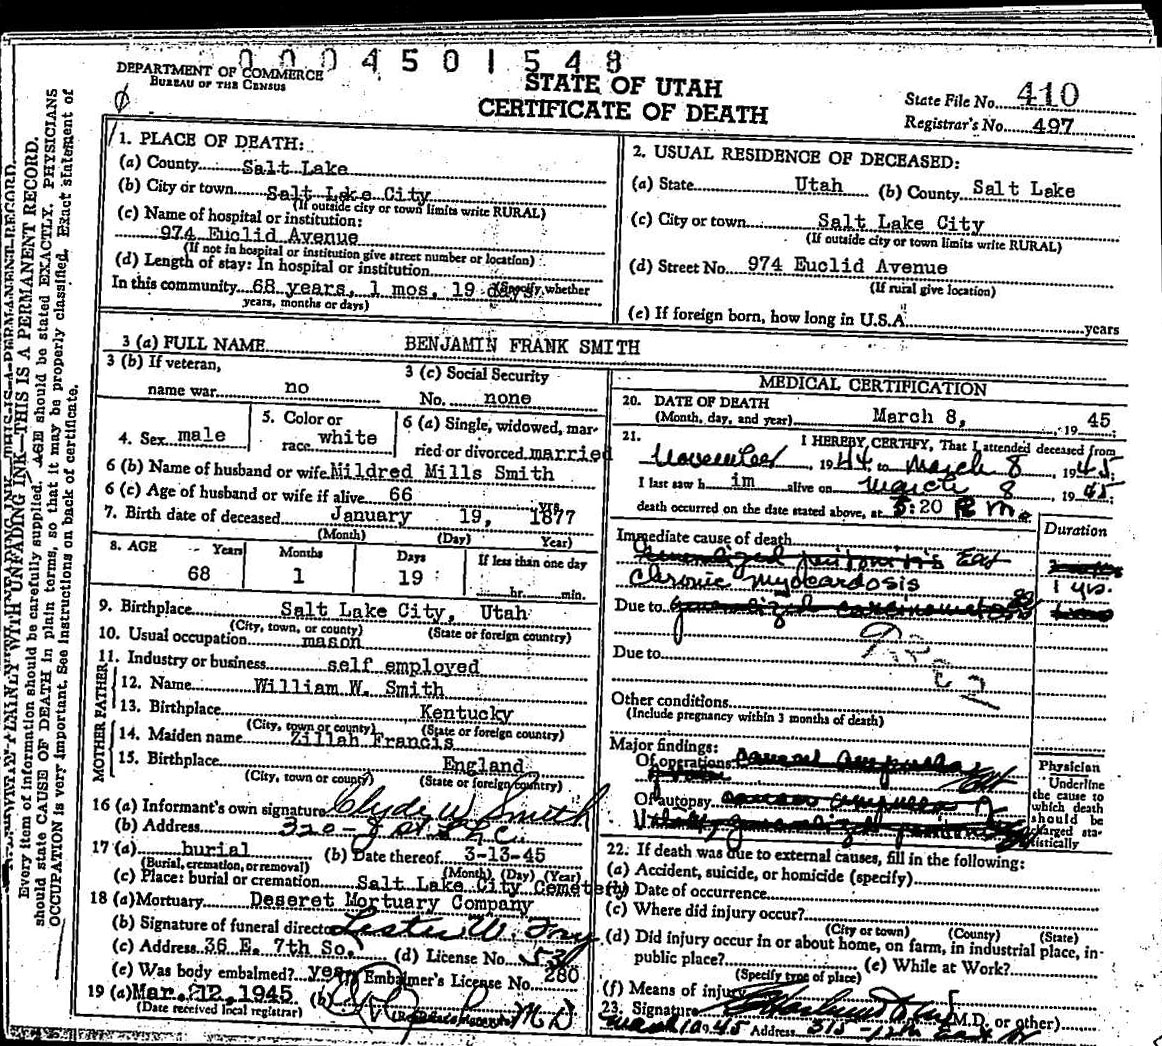 0004501548
DEPARTMENT OF COMMERCE
BUREAU OF THE CENSUS
STATE OF UTAH
CERTIFICATE OF DEATH
State File No. 410
Registrar's No. 497
WRITE PLAINLY WITH UNFADING INK—THIS IS A PERMANENT RECORD.
Every item of information should be carefully supplied. AGE should be stated EXACTLY. PHYSICIANS
should state CAUSE OF DEATH in plain terms, so that it may be properly classified. Exact statement of
OCCUPATION is very important. See instructions on back of certificate.
1. PLACE OF DEATH:
(a) County Salt Lake
(b) City or town Salt Lake City
(If outside city or town limits write RURAL)
(c) Name of hospital or institution:
974 Euclid Avenue
(If not in hospital or institution give street number or location)
(d) Length of stay: In hospital or institution
In this community 68 years, 1 mos, 19 days (Specify whether
years, months or days)
2. USUAL RESIDENCE OF DECEASED:
(a) State Utah (b) County Salt Lake
(c) City or town Salt Lake City
(If outside city or town limits write RURAL)
(d) Street No. 974 Euclid Avenue
(If rural give location)
(e) If foreign born, how long in U.S.A. years
3 (a) FULL NAME BENJAMIN FRANK SMITH
3 (b) If veteran,
name war no
3 (c) Social Security
No. none
4. Sex male
5. Color or
race white
6 (a) Single, widowed, mar-
ried or divorced married
6 (b) Name of husband or wife Mildred Mills Smith
6 (c) Age of husband or wife if alive 66 yrs
7. Birth date of deceased January 19, 1877
(Month) (Day) Year)
8. AGE Years Months Days If less than one day
68 1 19 hr. min.
9. Birthplace Salt Lake City, Utah
(City, town, or county) (State or foreign country)
10. Usual occupation mason
11. Industry or business self employed
FATHER
12. Name William W. Smith
13. Birthplace Kentucky
(City, town or county) (State or foreign country)
MOTHER
14. Maiden name Zillah Francis
15. Birthplace England
(City, town or county) (State or foreign country)
16 (a) Informant's own signature Clyde W Smith
(b) Address 320 - J St. S.L.C.
17 (a) burial (b) Date thereof 3-13-45
(Burial, cremation, or removal) (Month) (Day) (Year)
(c) Place: burial or cremation Salt Lake City Cemetery
18 (a) Mortuary Deseret Mortuary Company
(b) Signature of funeral director Lester W.
(c) Address 36 E. 7th So. (d) License No.
(e) Was body embalmed? yes Embalmer's License No. 280
19 (a) Mar. 12, 1945 (b) M D
(Date received local registrar)
MEDICAL CERTIFICATION
20. DATE OF DEATH
(Month, day, and year) March 8, 19 45
21. I HEREBY CERTIFY, That I attended deceased from
November, 19 44 to March 8, 19 45.
I last saw h im alive on March 8, 19 45;
death occurred on the date stated above, at 5:20 P m.
Duration
Immediate cause of death
Generalized peritonitis
Chronic myocardosis 1 yr.
Due to generalized carcinomatosis
Due to
Other conditions
(Include pregnancy within 3 months of death)
Major findings:
Of operations cancer ampulla
Of autopsy cancer ampulla
Physician
Underline
the cause to
which death
should be
charged sta-
tistically
22. If death was due to external causes, fill in the following:
(a) Accident, suicide, or homicide (specify)
(b) Date of occurrence
(c) Where did injury occur?
(City or town) (County) (State)
(d) Did injury occur in or about home, on farm, in industrial place, in-
public place? (e) While at Work?
(Specify type of place)
(f) Means of injury
23. Signature (M.D. or other)
March 10 1945 Address 315 - 12th East